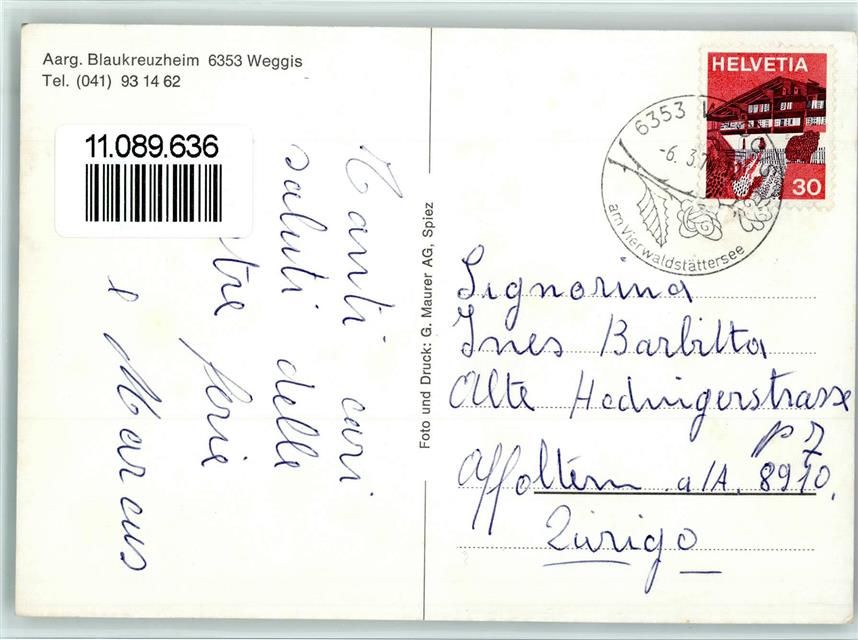 Aarg. Blaukreuzheim 6353 Weggis
Tel. (041) 93 14 62
11.089.636
Tanti cari
saluti delle
stre ferie
e Marcus
Foto und Druck: G. Maurer AG, Spiez
HELVETIA
30
6353
-6. 3.
am Vierwaldstättersee
Signorina
Ines Barbitta
Alte Hedingerstrasse
Affoltern a/A. 8910.
Zürigo